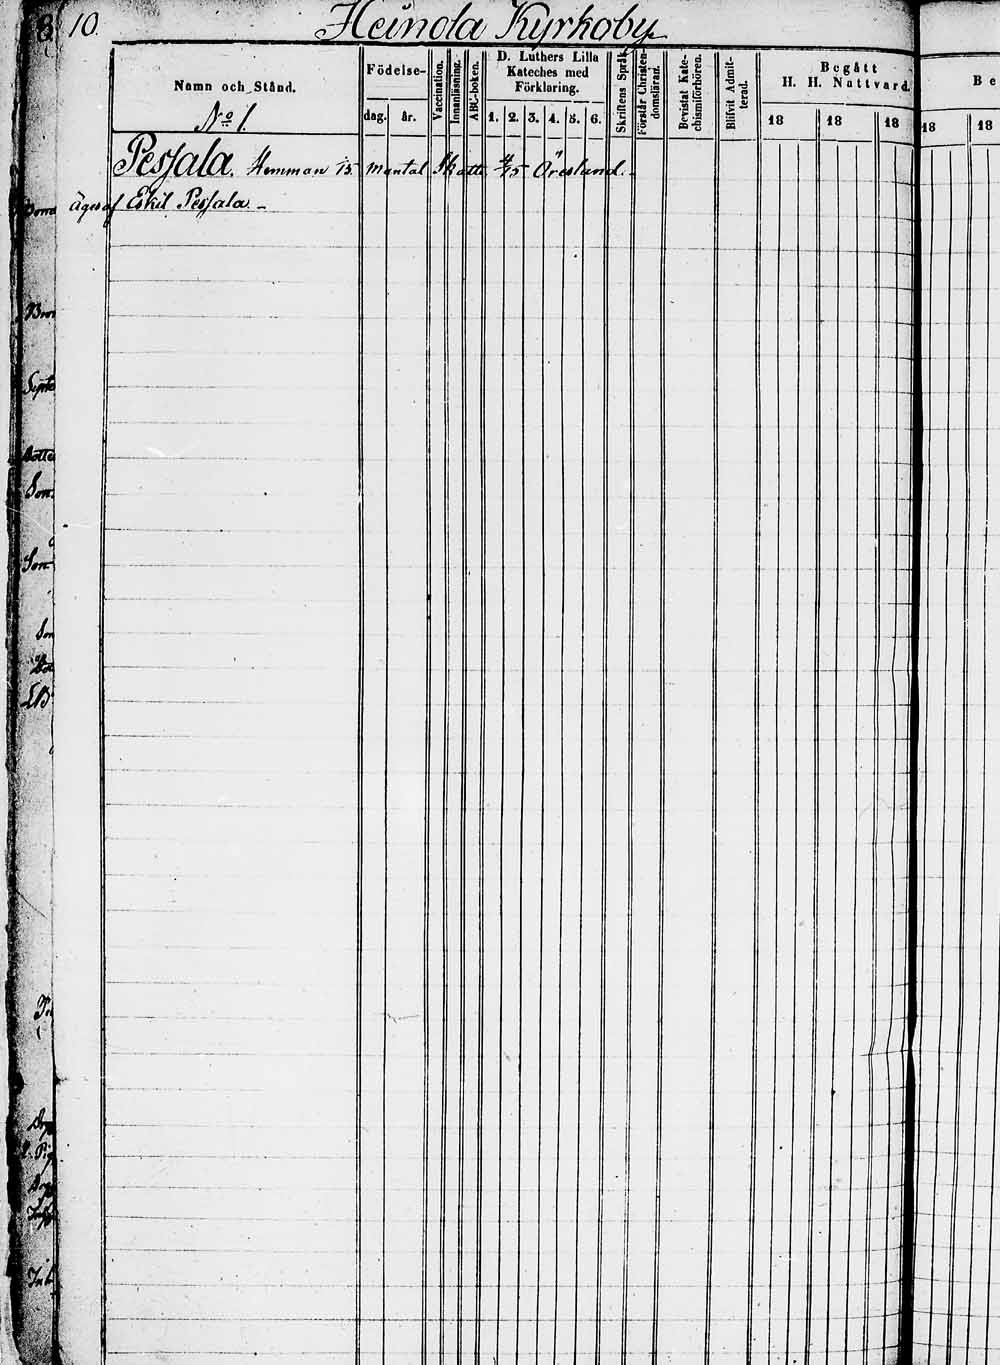 10.
Heinola Kyrkoby
Namn och Stånd.
No 1.
Födelse-
dag. år.
Vaccination.
Innanläsning.
ABC-boken.
D. Luthers Lilla
Kateches med
Förklaring.
1. 2. 3. 4. 5. 6.
Skriftens Språk.
Förstår Christen-
domsläran.
Bevistat Kate-
chismiförhören.
Blifvit Admit-
terad.
Begått
H. H. Nattvard.
18 18 18
Be
18 18
Pessala. Hemman /15 mantal Skatte 4/15 Öresland.
Äges af Eskil Pessala.
Son
Son